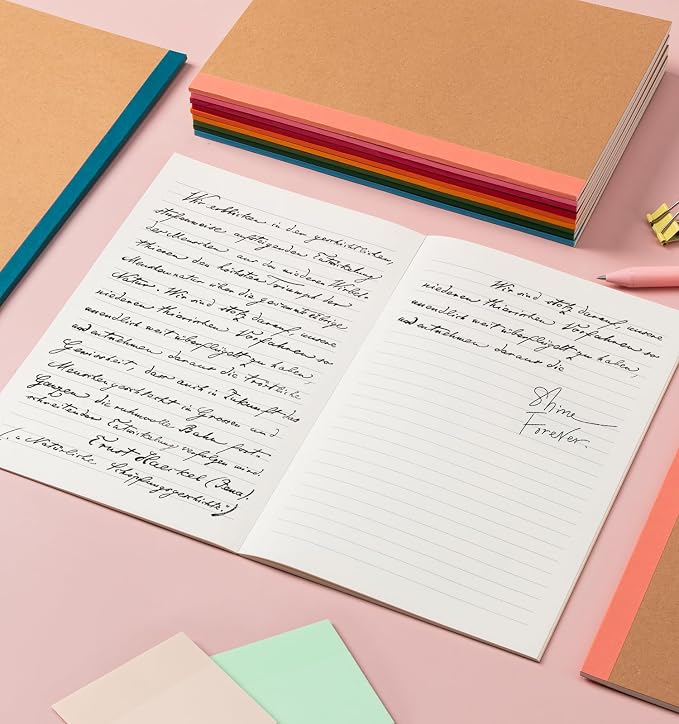 Wir erblicken in den geschichtlichen
stufenweise aufsteigenden Entwickelung
des Menschen aus den niederen Wirbel-
thieren den höchsten Triumph der
Menschennatur über die gesammte übrige
Natur. Wir sind stolz darauf, unsere
niederen thierischen Vorfahren so
unendlich weit überflügelt zu haben,
und entnehmen daraus die tröstliche
Gewissheit, dass auch in Zukunft das
Menschengeschlecht im Grossen und
Ganzen die ruhmvolle Bahn fort-
schreitender Entwickelung verfolgen wird
Ernst Haeckel (Jena).
("Natürliche Schöpfungsgeschichte")
Wir sind stolz darauf, unsere
niederen thierischen Vorfahren so
unendlich weit überflügelt zu haben,
und entnehmen daraus die
Shine
Forever.